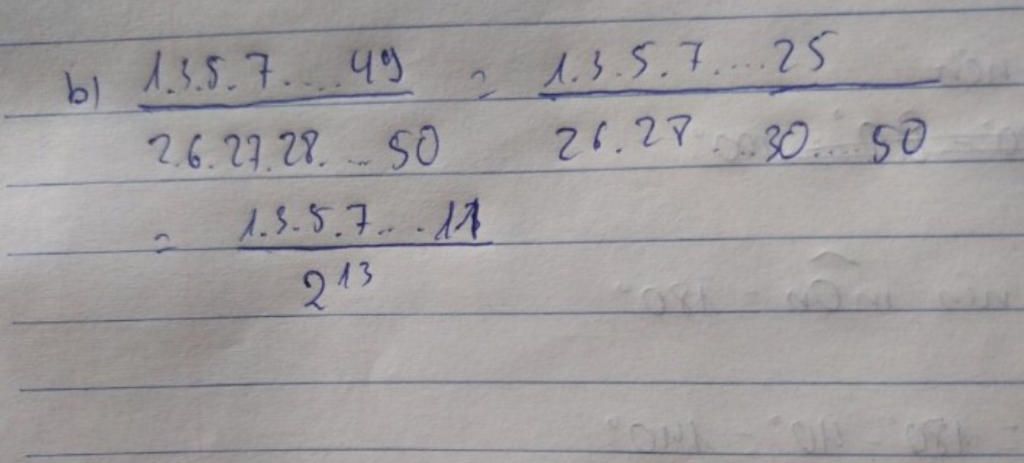 b) 1.3.5.7....49 / 2.6.27.28....50 = 1.3.5.7....25 / 26.28...30....50
= 1.3.5.7....11 / 2^13